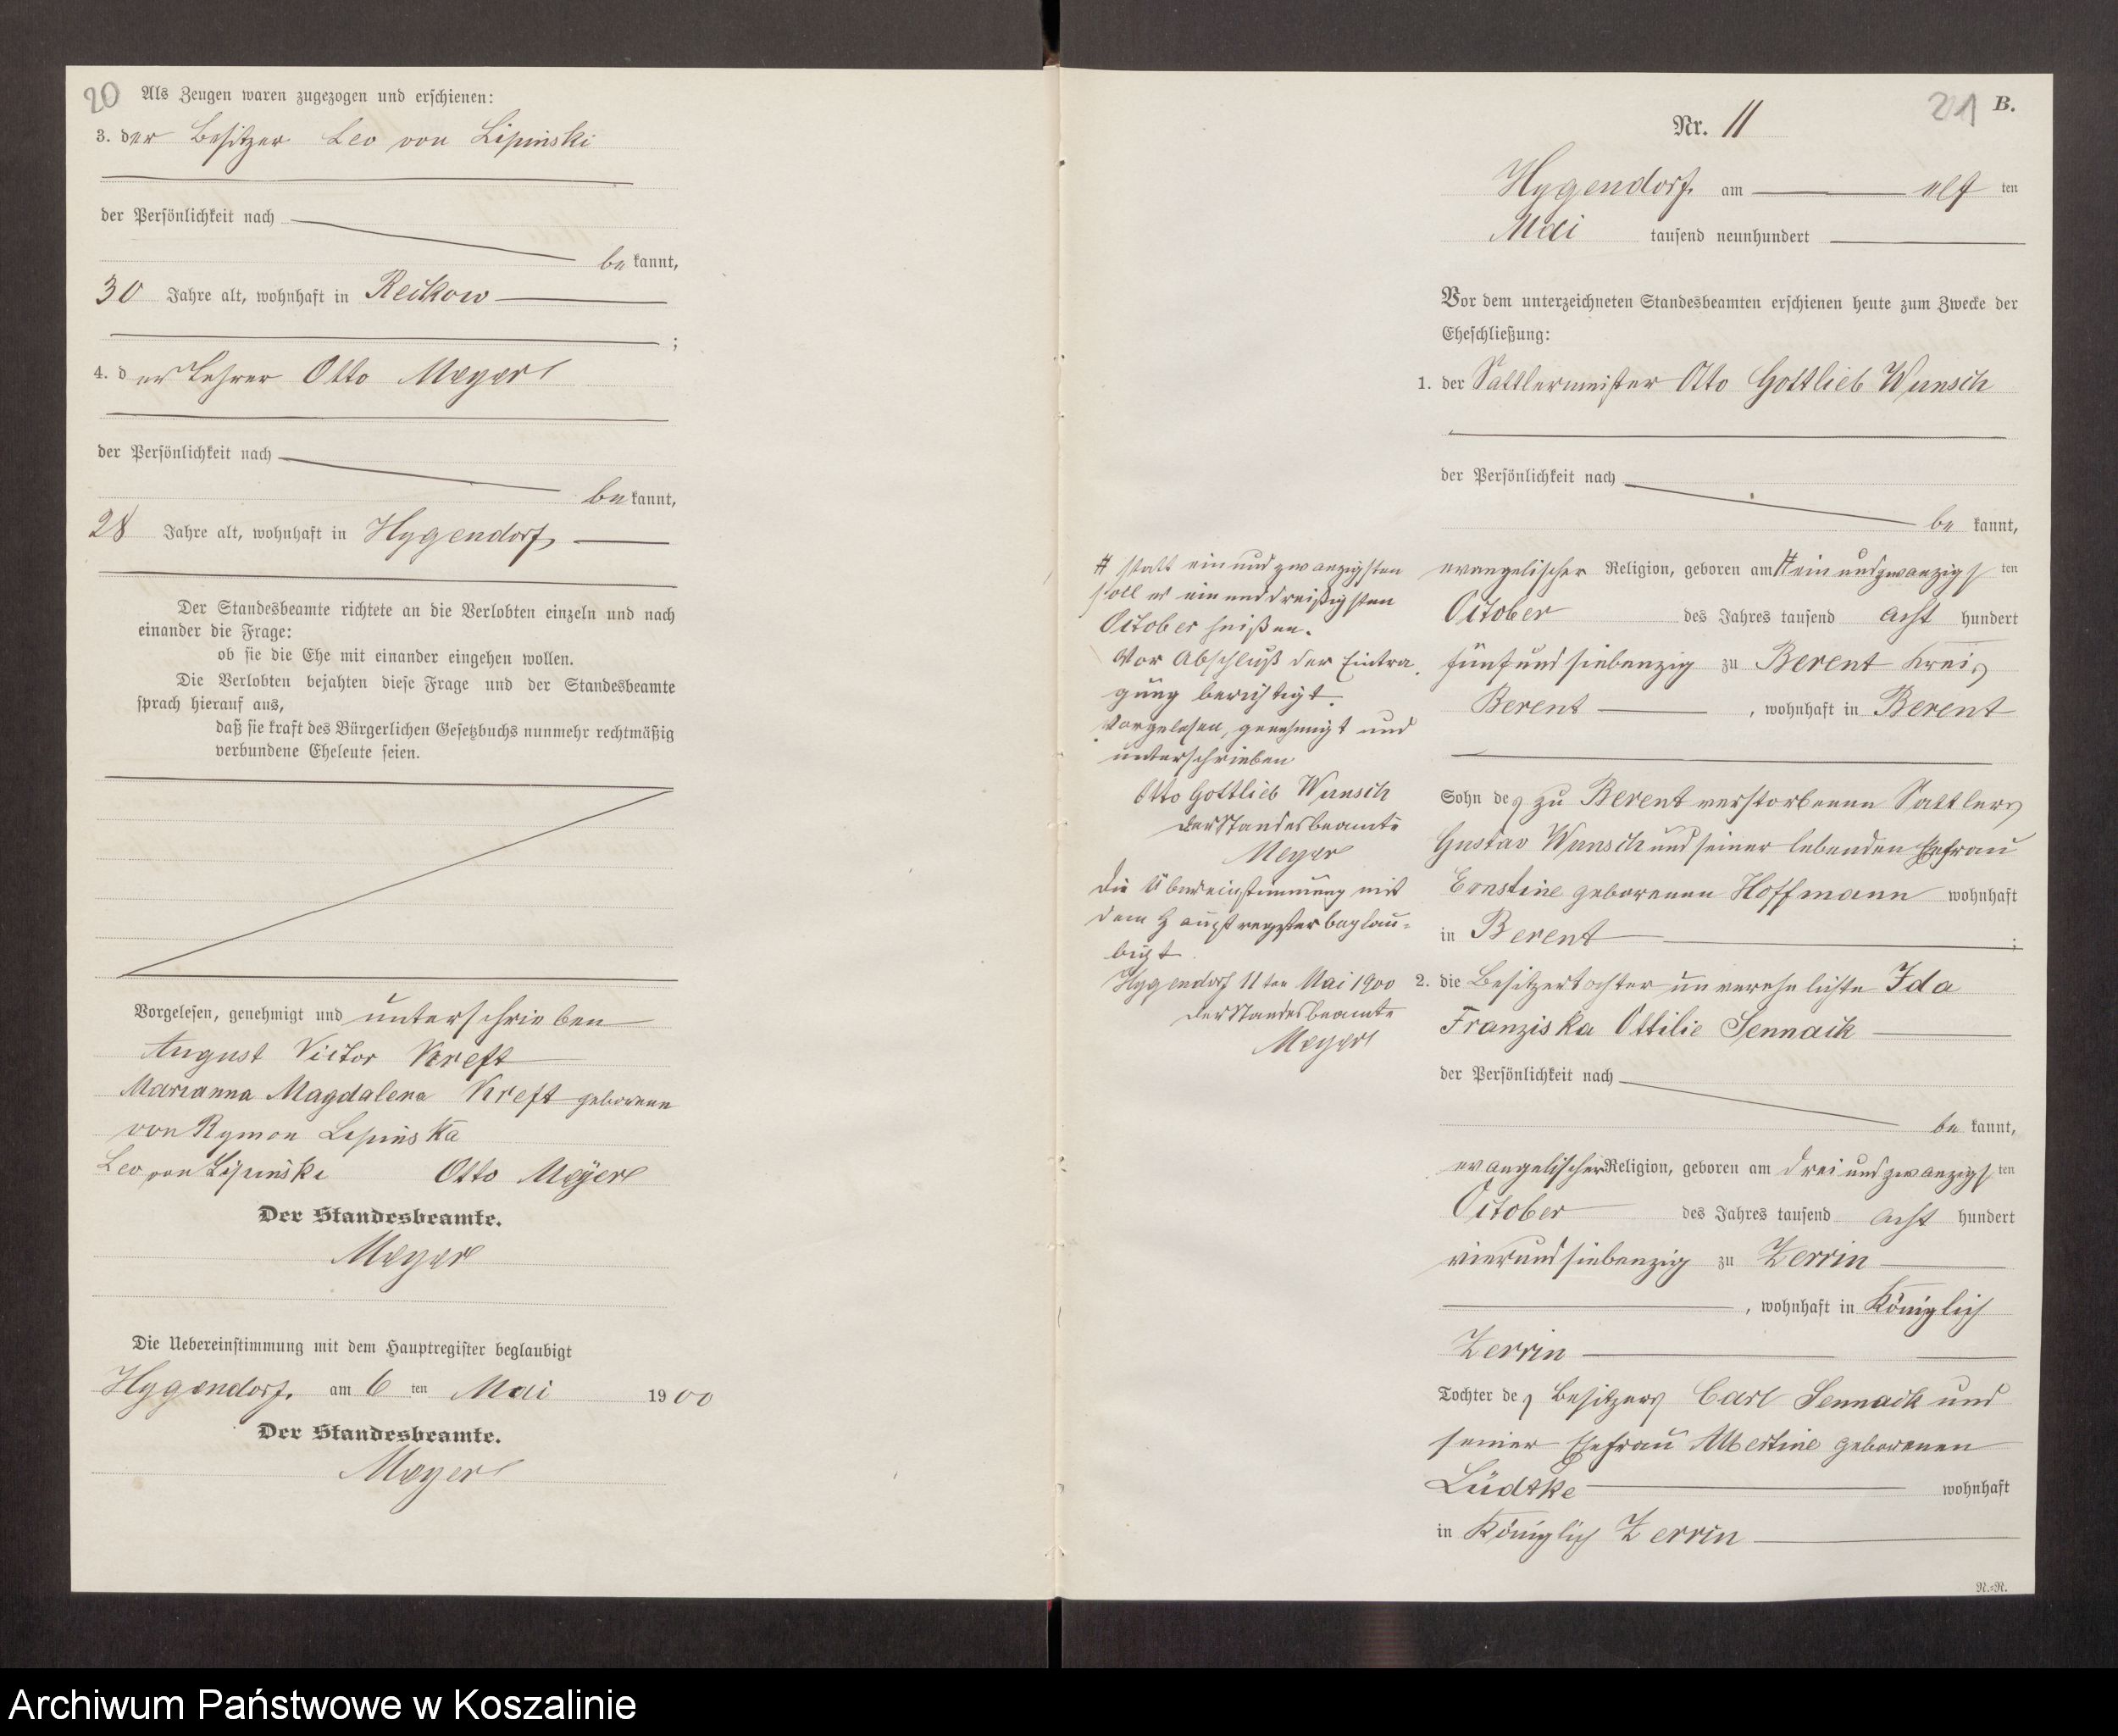 20
Als Zeugen waren zugezogen und erschienen:
3. der Besitzer Leo von Lipinski
der Persönlichkeit nach
be kannt,
30 Jahre alt, wohnhaft in Reckow
;
4. der Lehrer Otto Meyer
der Persönlichkeit nach
be kannt,
28 Jahre alt, wohnhaft in Hygendorf
Der Standesbeamte richtete an die Verlobten einzeln und nach
einander die Frage:
ob sie die Ehe mit einander eingehen wollen.
Die Verlobten bejahten diese Frage und der Standesbeamte
sprach hierauf aus,
daß sie kraft des Bürgerlichen Gesetzbuchs nunmehr rechtmäßig
verbundene Eheleute seien.
Vorgelesen, genehmigt und unterschrieben
August Victor Kreft
Marianna Magdalena Kreft geborene
von Rymon Lipinska
Leo von Lipinski Otto Meyer
Der Standesbeamte.
Meyer
Die Uebereinstimmung mit dem Hauptregister beglaubigt
Hygendorf, am 6 ten Mai 1900
Der Standesbeamte.
Meyer
21 B.
Nr. 11
Hygendorf, am elf ten
Mai tausend neunhundert
Vor dem unterzeichneten Standesbeamten erschienen heute zum Zwecke der
Eheschließung:
1. der Sattlermeister Otto Gottlieb Wunsch
der Persönlichkeit nach
be kannt,
evangelischer Religion, geboren am # ein und zwanzigs ten
October des Jahres tausend acht hundert
fünfund siebenzig zu Berent Kreis
Berent , wohnhaft in Berent
Sohn des zu Berent verstorbenen Sattlers
Gustav Wunsch und seiner lebenden Ehefrau
Ernstine geborenen Hoffmann wohnhaft
in Berent ;
2. die Besitzertochter unverehelichte Ida
Franziska Ottilie Sennack
der Persönlichkeit nach
be kannt,
evangelischer Religion, geboren am drei und zwanzigs ten
October des Jahres tausend acht hundert
vierund siebenzig zu Zerrin
, wohnhaft in Königlich
Zerrin
Tochter des Besitzers Carl Sennack und
seiner Ehefrau Albertine geborenen
Lüdtke wohnhaft
in Königlich Zerrin
N.=N.
# statt ein und zwanzigsten
soll es ein und dreißigsten
October heißen.
Vor Abschluß der Eintra
gung berichtigt.
Vorgelesen, genehmigt und
unterschrieben
Otto Gottlieb Wunsch
Der Standesbeamte
Meyer
Die Übereinstimmung mit
dem Hauptregister beglau=
bigt
Hygendorf 11 ten Mai 1900
Der Standesbeamte
Meyer
Archiwum Państwowe w Koszalinie